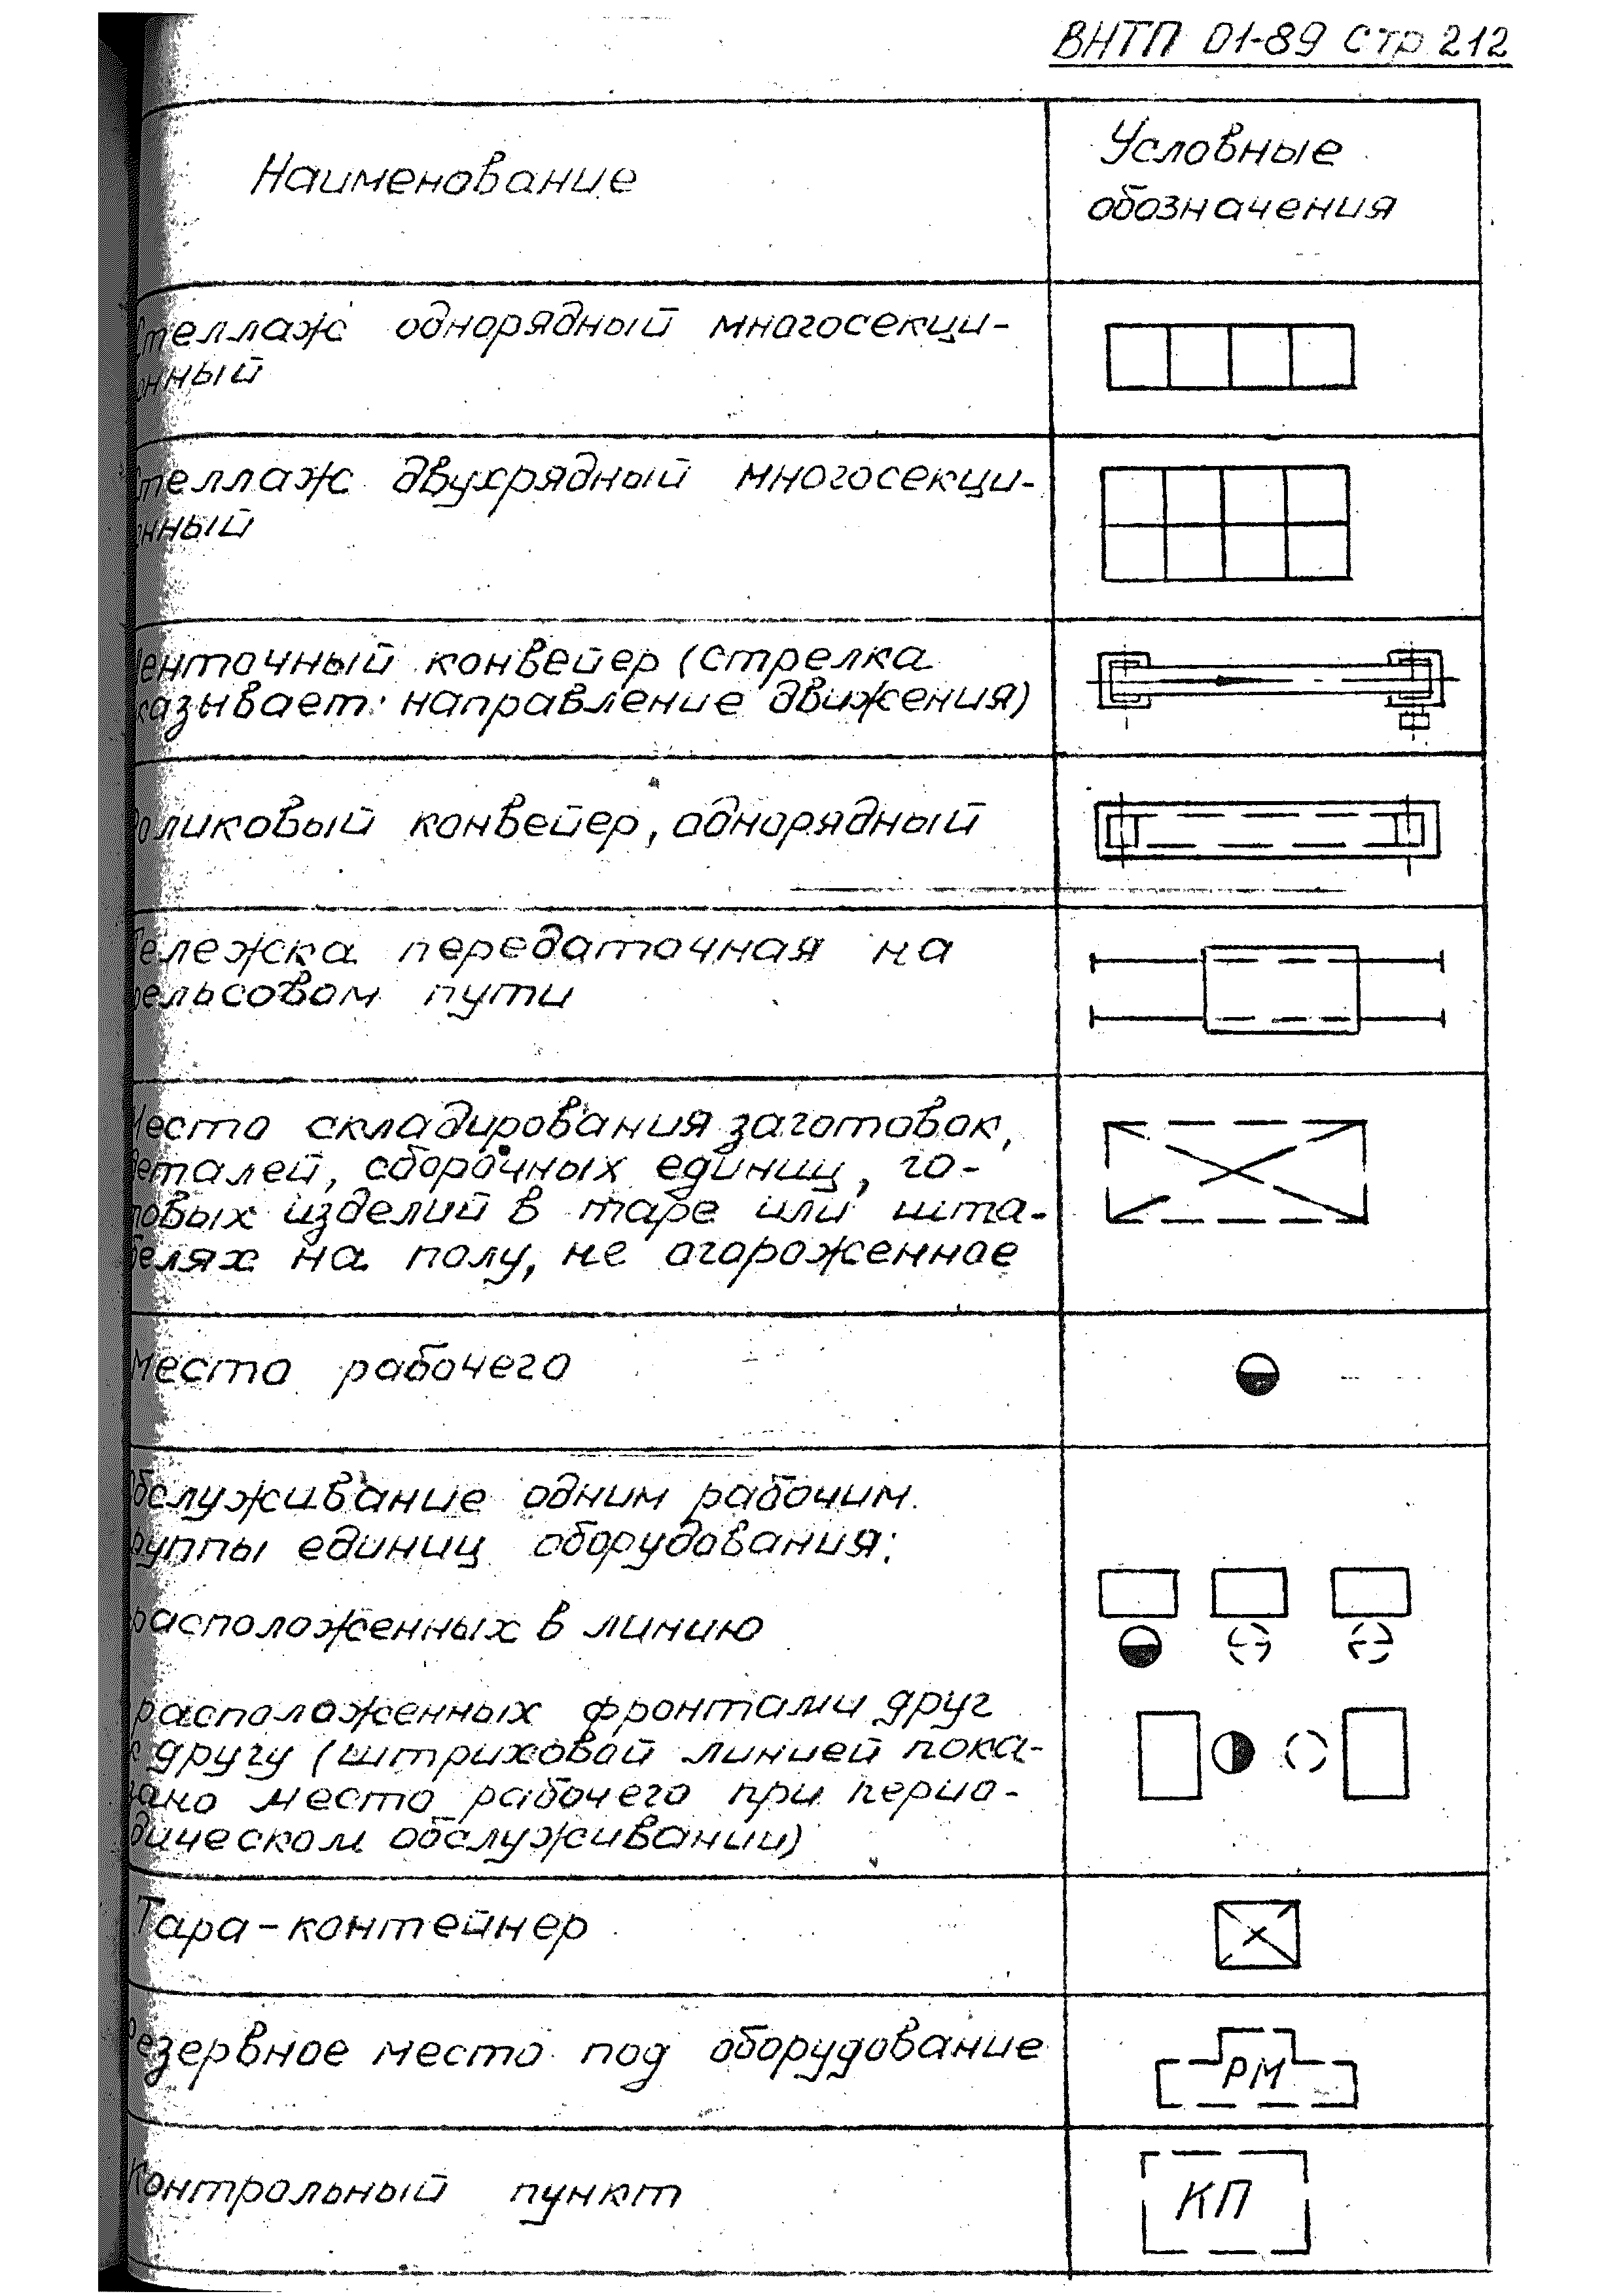 ВНТП 01-89 Стр 212
Наименование
Условные
обозначения
Стеллаж однорядный многосекци-
онный
Стеллаж двухрядный многосекци-
онный
Ленточный конвейер (стрелка
указывает направление движения)
Роликовый конвейер, однорядный
Тележка передаточная на
рельсовом пути
Место складирования заготовок,
деталей, сборочных единиц, го-
товых изделий в таре или шта-
белях на полу, не огороженное
Место рабочего
Обслуживание одним рабочим
группы единиц оборудования:
расположенных в линию
расположенных фронтами друг
к другу (штриховой линией пока-
зано место рабочего при перио-
дическом обслуживании)
Тара-контейнер
Резервное место под оборудование
РМ
Контрольный пункт
КП